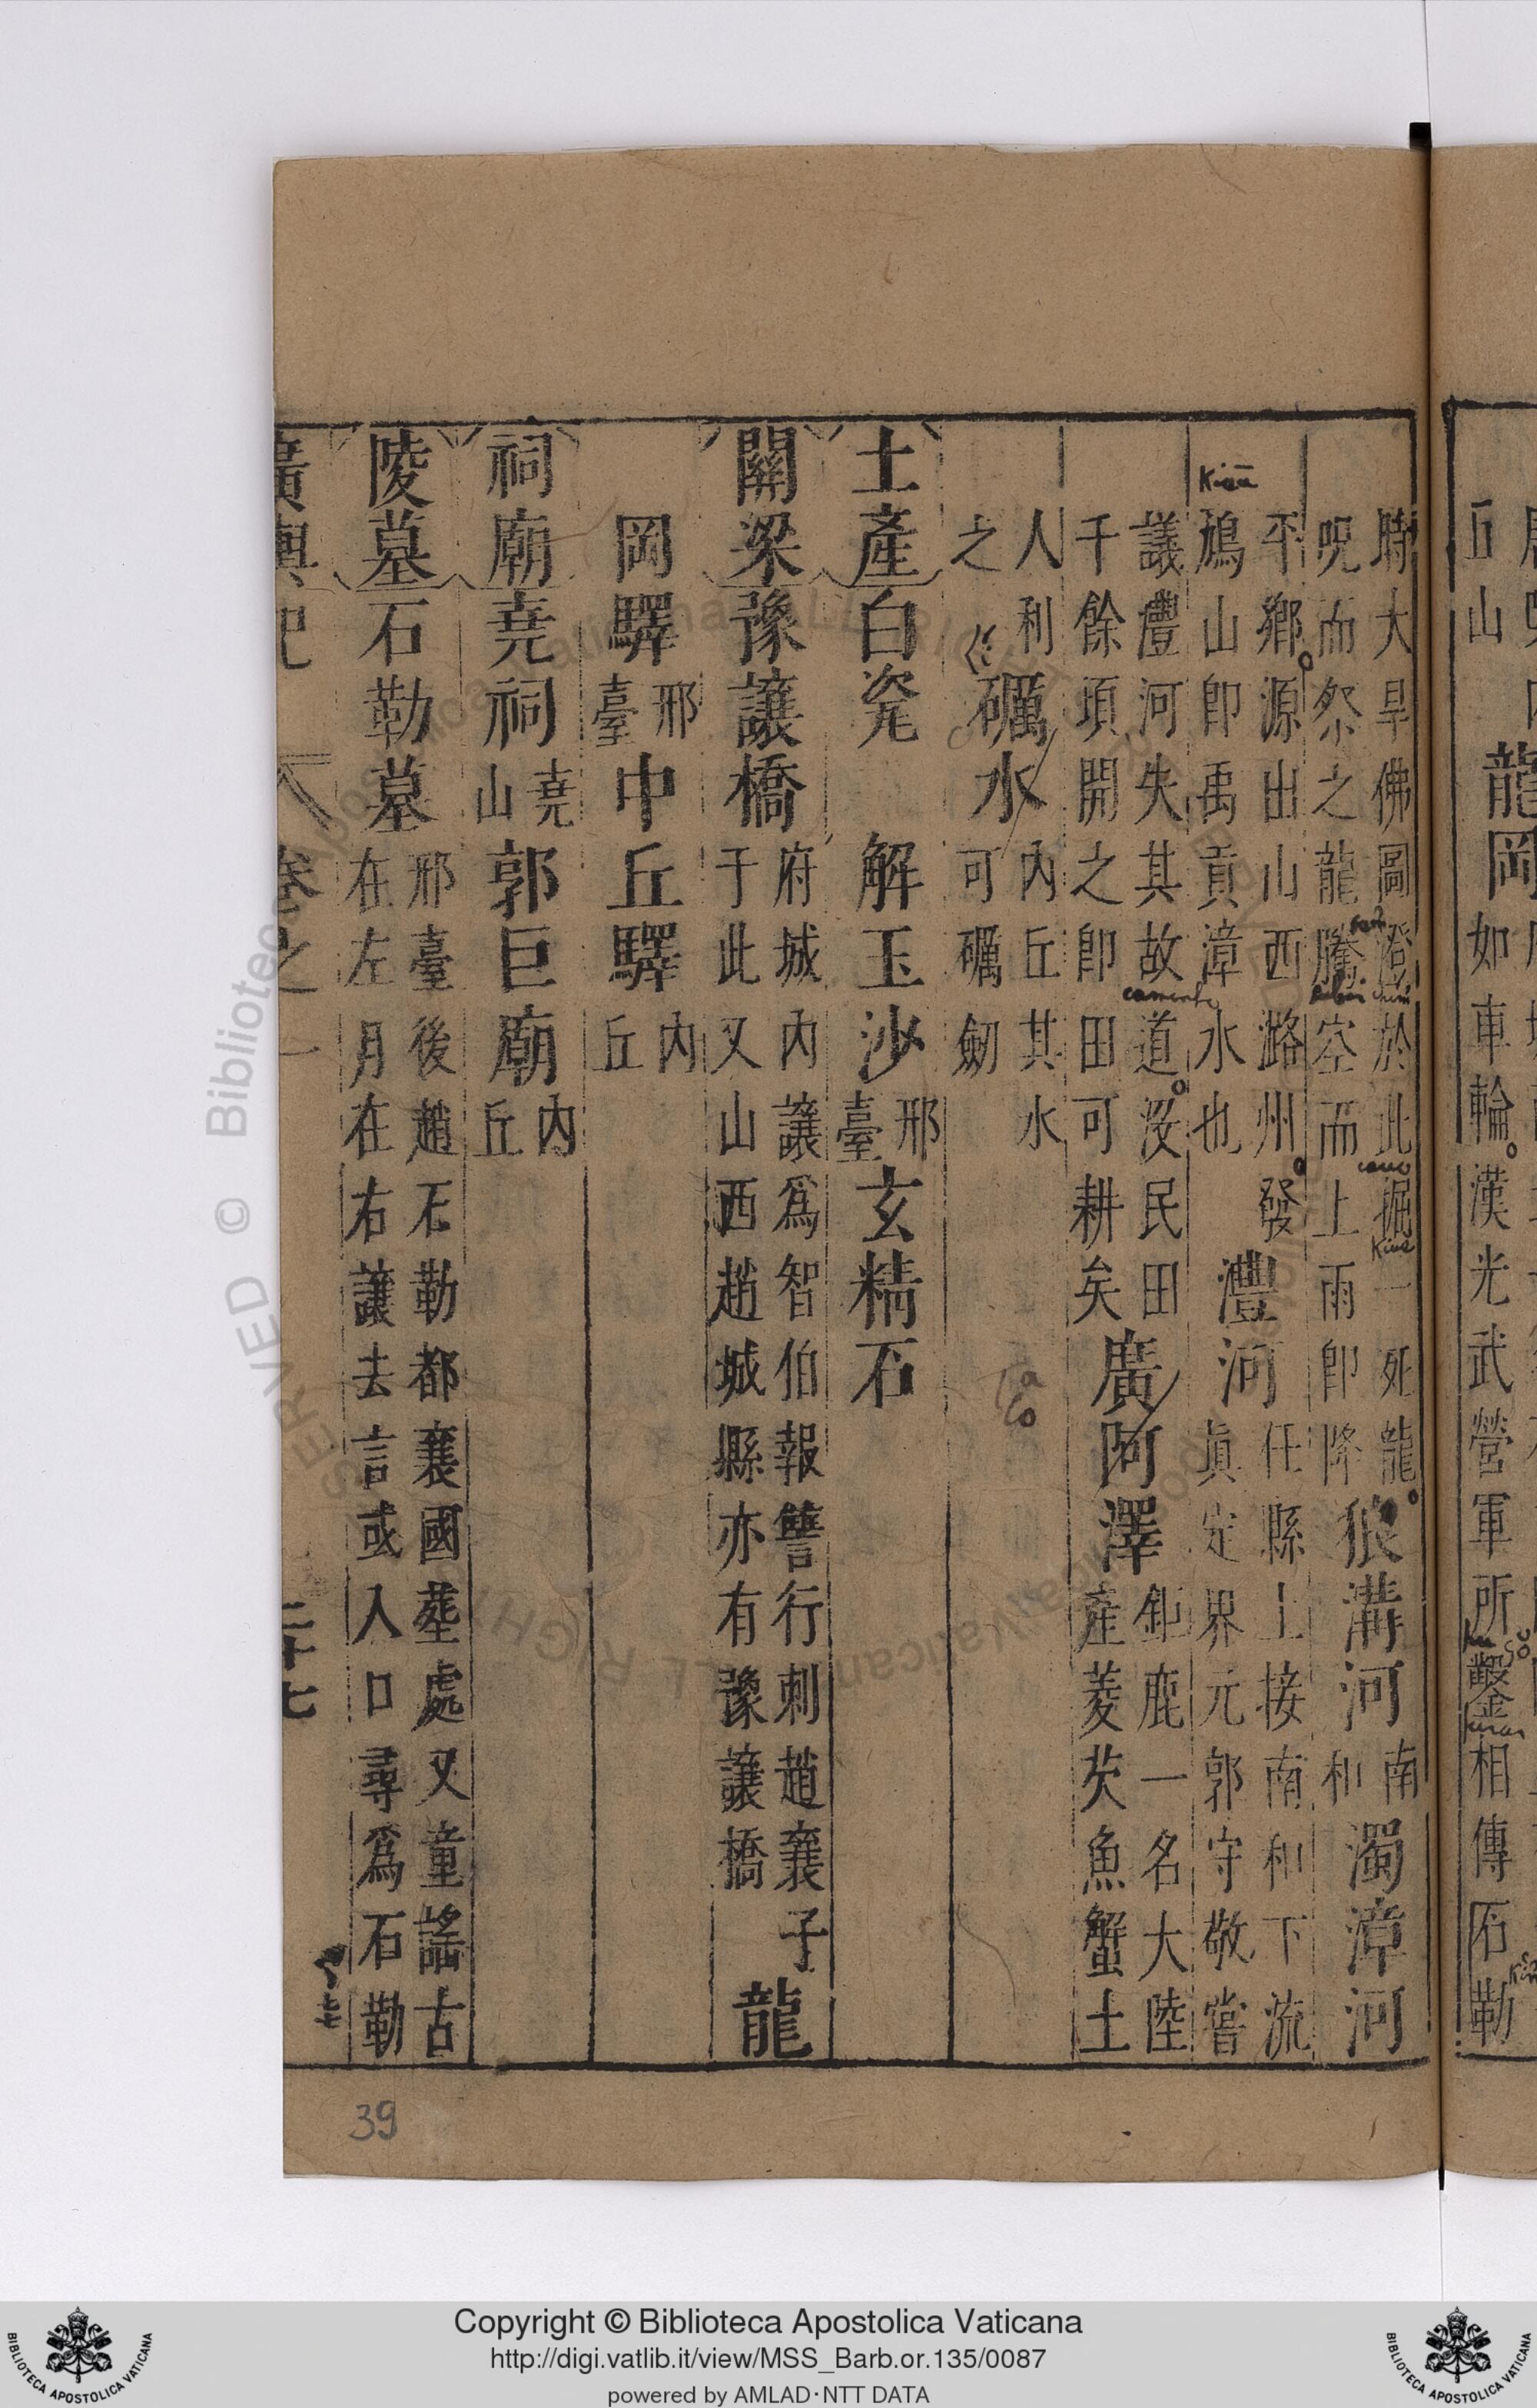 丘山
龍岡
如車輪漢光武營軍所鑿相傳石勒
時大旱佛圖澄於此掘一死龍
呪而祭之龍騰空而上雨即降
狼溝河
南
和
濁漳河
平鄉源出山西潞州發
鳩山即禹貢漳水也
灃河
任縣上接南和下流
眞定界元郭守敬嘗
議灃河失其故道沒民田
千餘頃開之即田可耕矣
廣阿澤
鉅鹿一名大陸
產菱芡魚蟹土
人利
之
礪水
內丘其水
可礪劒
土產
白瓷
解玉沙
邢
臺
玄精石
關梁
豫讓橋
府城內讓爲智伯報讐行刺趙襄子
于此又山西趙城縣亦有豫讓橋
龍
岡驛
邢
臺
中丘驛
內
丘
祠廟
堯祠
堯
山
郭巨廟
內
丘
陵墓
石勒墓
邢臺後趙石勒都襄國塟處又童謠古
在左月在右讓去言或入口尋爲石勒
廣輿記
卷之一
二十七
39
Copyright © Biblioteca Apostolica Vaticana
http://digi.vatlib.it/view/MSS_Barb.or.135/0087
powered by AMLAD·NTT DATA